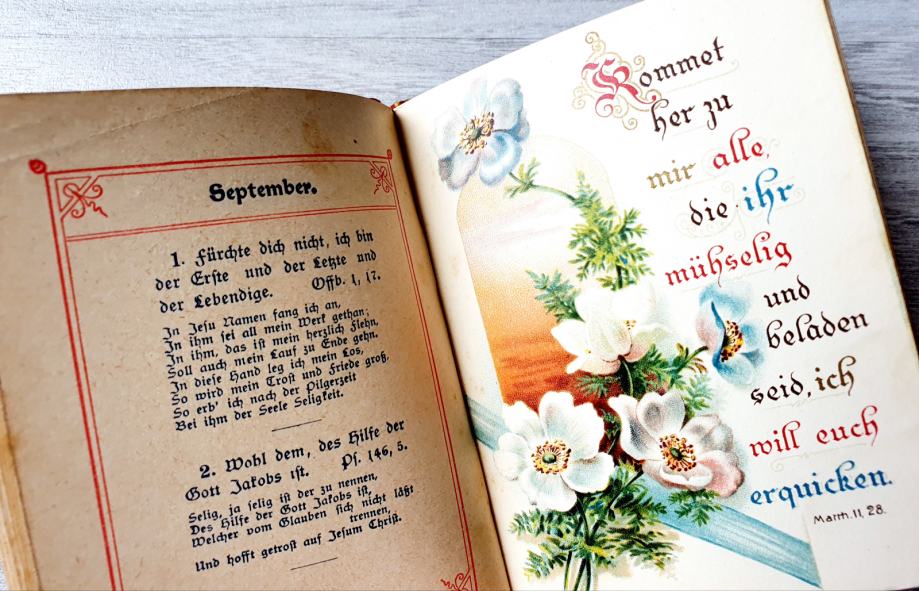 September.
1. Fürchte dich nicht, ich bin
der Erste und der Letzte und
der Lebendige. Offb. 1, 17.
In Jesu Namen fang ich an,
In ihm sei all mein Werk gethan;
In ihm, das ist mein herzlich Flehn,
Soll auch mein Lauf zu Ende gehn.
In diese Hand leg ich mein Los,
So wird mein Trost und Friede groß,
So erb' ich nach der Pilgerzeit
Bei ihm der Seele Seligkeit.
2. Wohl dem, des Hilfe der
Gott Jakobs ist. Ps. 146, 5.
Selig, ja selig ist der zu nennen,
Des Hilfe der Gott Jakobs ist,
Welcher vom Glauben sich nicht läßt
trennen,
Und hofft getrost auf Jesum Christ.
Kommet
her zu
mir alle,
die ihr
mühselig
und
beladen
seid, ich
will euch
erquicken.
Matth. 11, 28.